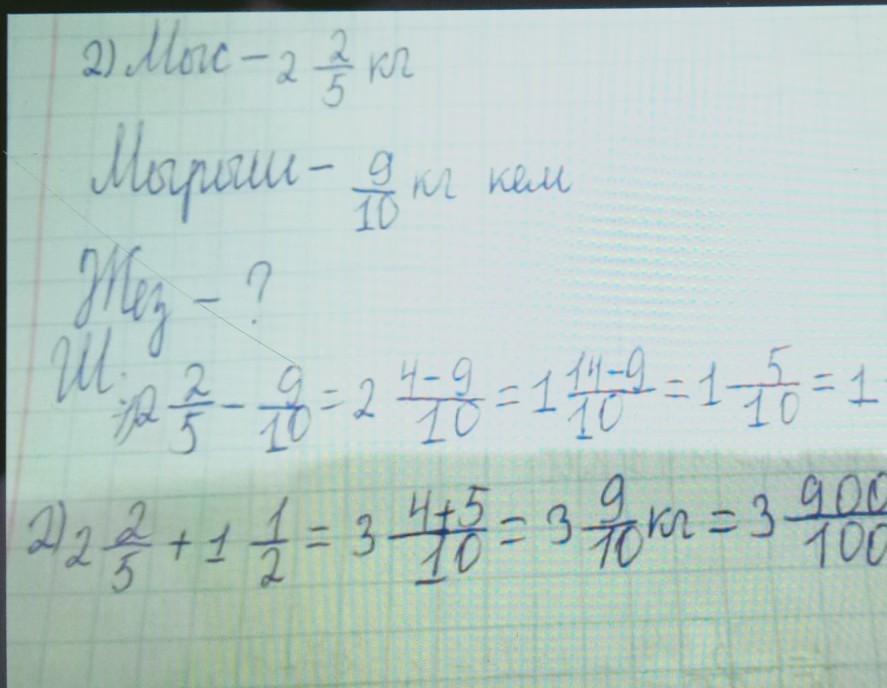 2) Мыс - 2 2/5 кг
Мырыш - 9/10 кг кем
Жез - ?
Ш:
1) 2 2/5 - 9/10 = 2 4-9/10 = 1 14-9/10 = 1 5/10 = 1
2) 2 2/5 + 1 1/2 = 3 4+5/10 = 3 9/10 кг = 3 900/100